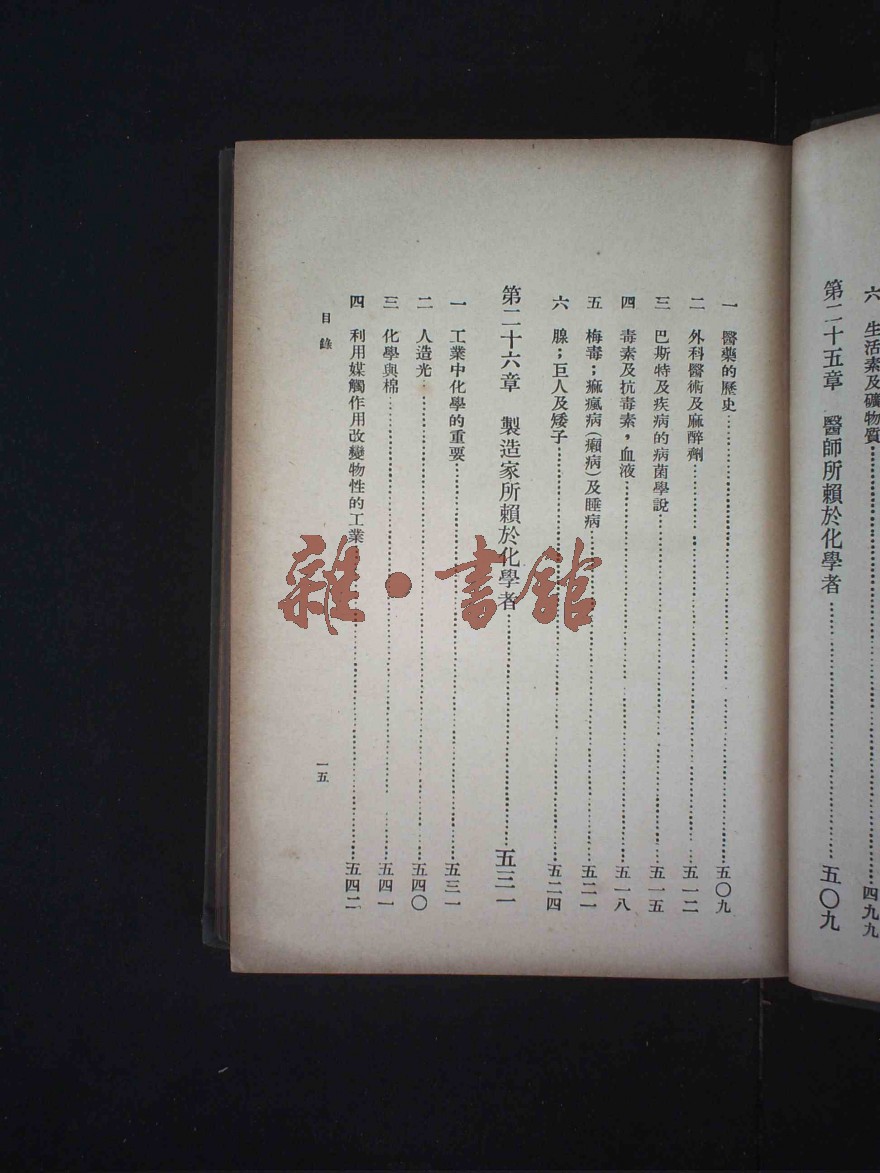 六　生活素及礦物質……四九九
第二十五章　醫師所賴於化學者……五〇九
一　醫藥的歷史……五〇九
二　外科醫術及麻醉劑……五一二
三　巴斯特及疾病的病菌學說……五一五
四　毒素及抗毒素，血液……五一八
五　梅毒；痲瘋病（癩病）及睡病……五二一
六　腺；巨人及矮子……五二四
第二十六章　製造家所賴於化學者……五三一
一　工業中化學的重要……五三一
二　人造光……五四〇
三　化學與棉……五四一
四　利用媒觸作用改變物性的工業……五四二
目錄
一五
雜·書館